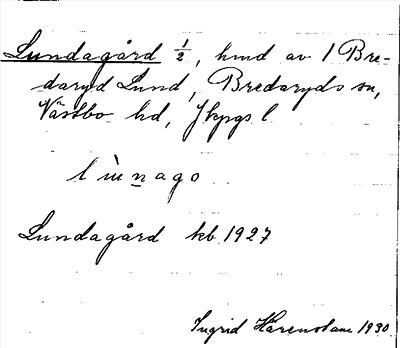 Lundagård ½, hmd av 1 Bre-
daryd Lund, Bredaryds sn,
Västbo hd, Jkpgs l
Lundagård kb 1927
Ingrid Härenstam 1930